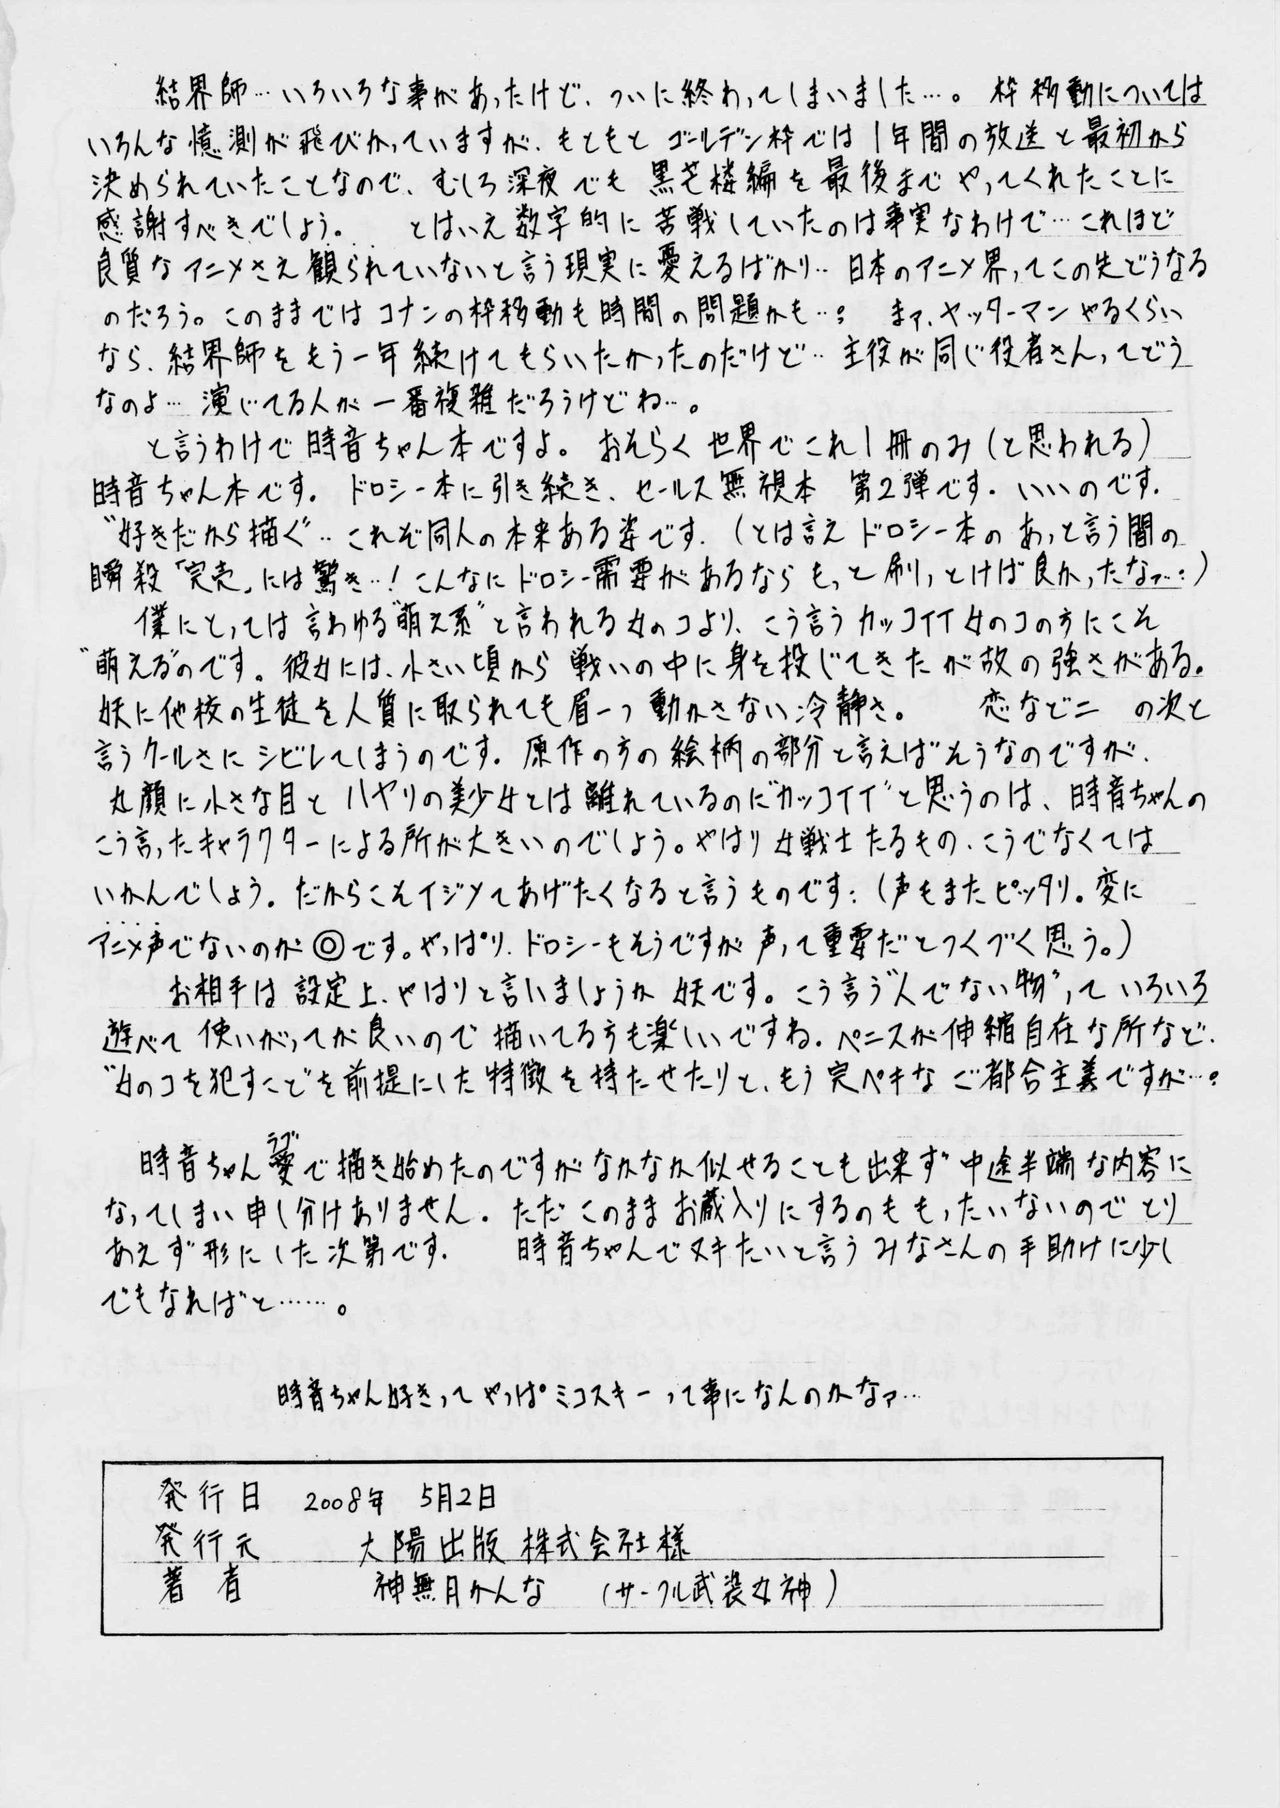 結界師…いろいろな事があったけど、ついに終わってしまいました…。枠移動については
いろんな憶測が飛びかっていますが、もともとゴールデン枠では1年間の放送と最初から
決められていたことなので、むしろ深夜でも黒芒楼編を最後までやってくれたことに
感謝すべきでしょう。 とはいえ数字的に苦戦していたのは事実なわけで…これほど
良質なアニメさえ観られていないと言う現実に憂えるばかり…日本のアニメ界ってこの先どうなる
のだろう。このままではコナンの枠移動も時間の問題かも…? まァ、ヤッターマンやるくらい
なら、結界師をもう一年続けてもらいたかったのだけど…主役が同じ役者さんってどう
なのよ…演じてる人が一番複雑だろうけどね…。
と言うわけで時音ちゃん本ですよ。おそらく世界でこれ1冊のみ(と思われる)
時音ちゃん本です。ドロシー本に引き続き、セールス無視本 第2弾です。いいのです。
“好きだから描く”…これぞ同人の本来ある姿です。(とは言えドロシー本のあっと言う間の
瞬殺「完売」には驚き…!こんなにドロシー需要があるならもっと刷っとけば良かったなァ…:)
僕にとっては言わゆる“萌え系”と言われる女のコより、こう言うカッコイイ女のコの方にこそ
“萌える”のです。彼女には、小さい頃から戦いの中に身を投じてきたが故の強さがある。
妖に他校の生徒を人質に取られても眉一つ動かさない冷静さ。 恋など二 の次と
言うクールさにシビレてしまうのです。原作の方の絵柄の部分と言えばそうなのですが、
丸顔に小さな目とハヤリの美少女とは離れているのに“カッコイイ”と思うのは、時音ちゃんの
こう言ったキャラクターによる所が大きいのでしょう。やはり女戦士たるもの、こうでなくては
いかんでしょう。だからこそイジメてあげたくなると言うものです:(声もまたピッタリ。変に
アニメ声でないのが◎です。やっぱり、ドロシーもそうですが声って重要だとつくづく思う。)
お相手は設定上、やはりと言いましょうか妖です。こう言う“人でない物”っていろいろ
遊べて使いがってが良いので描いてる方も楽しいですね。ペニスが伸縮自在な所など、
“女のコを犯すこと”を前提にした特徴を持たせたりと、もう完ペキなご都合主義ですが…?
時音ちゃん愛(ラブ)で描き始めたのですがなかなか似せることも出来ず中途半端な内容に
なってしまい申し分けありません。ただこのままお蔵入りにするのももったいないのでとり
あえず形にした次第です。 時音ちゃんでヌキたいと言うみなさんの手助けに少し
でもなればと……。
時音ちゃん好きってやっぱミコスキーって事になんのかなァ…
発行日 2008年 5月2日
発行元 大陽出版株式会社様
著者 神無月かんな (サークル武装女神)